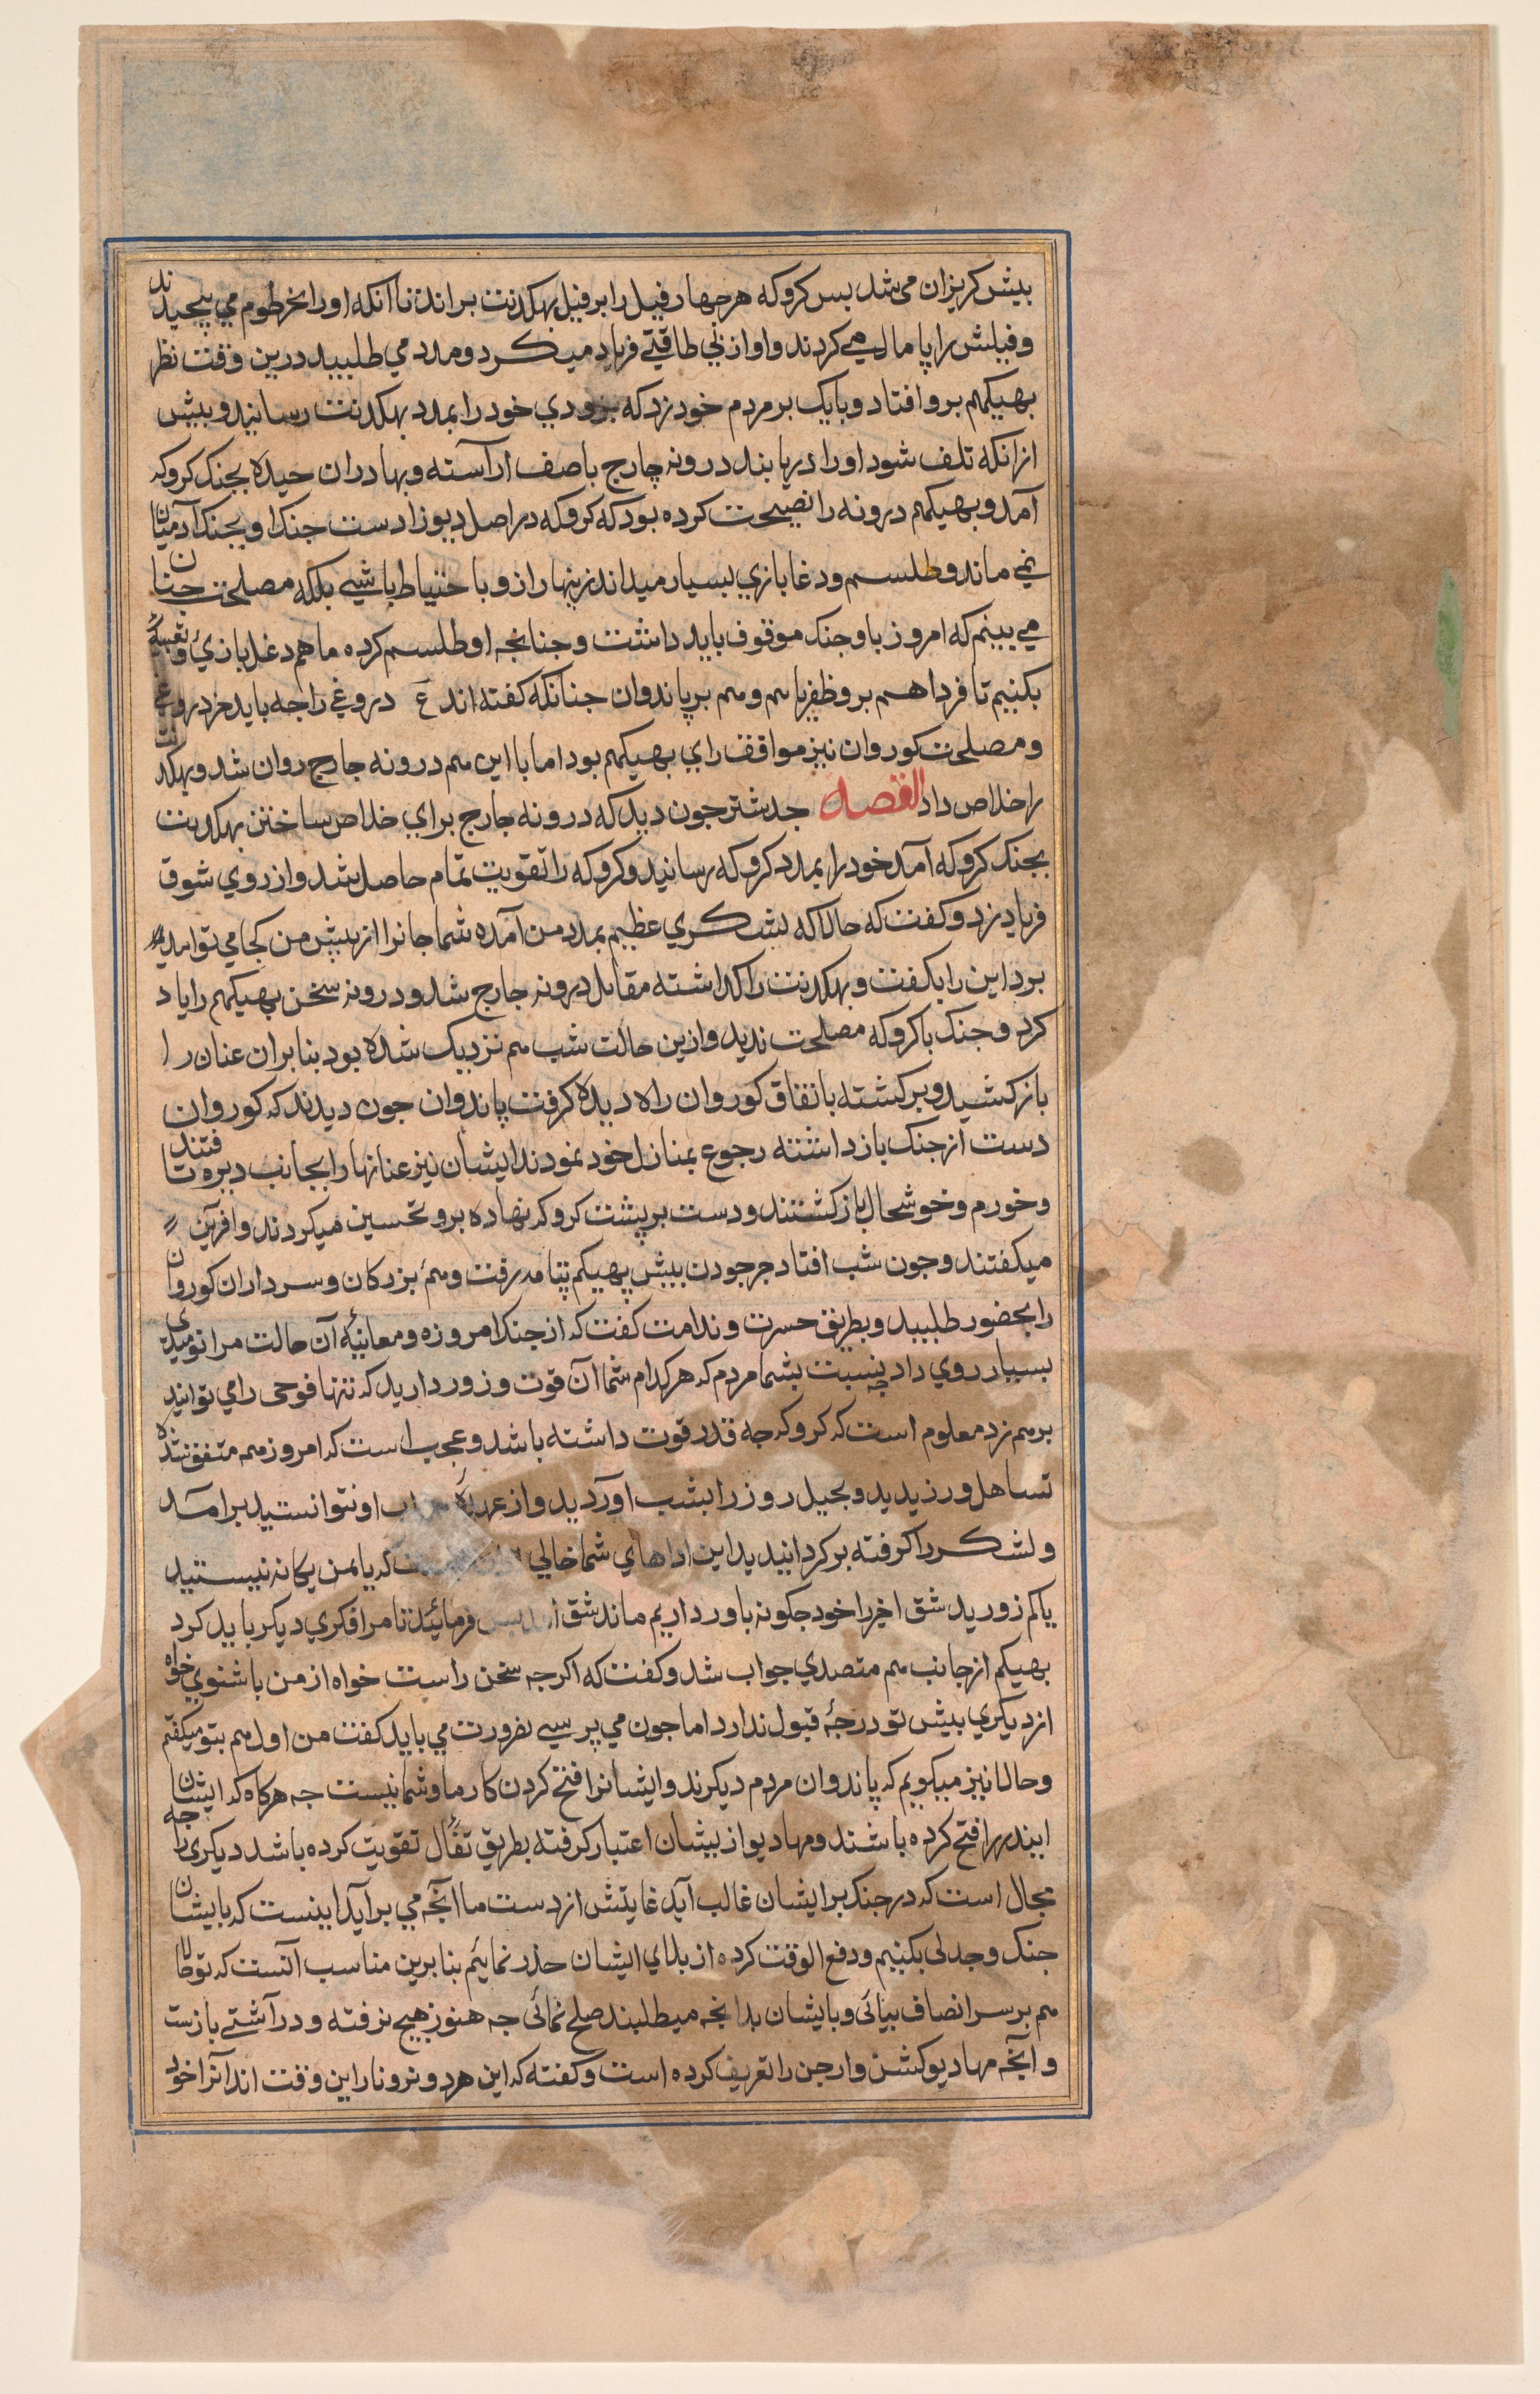 بیش کریزان می شد بس کروکه هر چهار فیل را بر فیل بهکدنت براند تا انکه او را بخرطوم می پیچیدند
و فیلش را پامال می کردند و او از بی طاقتی فریاد میکرد و مدد می طلبید درین وقت نظر
بهیکهم برو افتاد و بانک بر مردم خود زد که بزودی خود را بمدد بهکدنت رسانید و بیش
ازانکه تلف شود او را دریابند درونه چارج باصف اراسته و بهادران جیده بجنک کروکه
آمد و بهیکهم درونه را نصیحت کرده بود که کروکه در اصل دیوزادست جنک او بجنک آدمیان
نمی ماند و طلسم و دغابازی بسیار میداند زینهار ازو با حتیاط باشی بلکه مصلحت جنان
می بینم که امروز با و جنک موقوف باید داشت و جنانجه او طلسم کرده ما هم دغل بازی و تعبیهٔ
بکنیم تا فردا هم برو ظفر یابیم و هم بر پاندوان جنانکه کفته اند ع دروغی را جه باید جز دروغی
و مصلحت کوروان نیز موافق رای بهیکهم بود اما با این هم درونه جارج روان شد و بهکدنت
را خلاص داد القصه جدشتر جون دید که درونه جارج برای خلاص ساختن بهکدنت
بجنک کروکه آمد خود را بمدد کروکه رسانید و کروکه را تقویت تمام حاصل شد و از روی شوق
فریاد زد و کفت که حالا که لشکری عظیم بمدد من آمده شما جانرا از پیش من کجا می توانید
برد این را بکفت و بهکدنت را کذاشته مقابل درونه جارج شد و درونه سخن بهیکهم را یاد
کرد و جنک با کروکه مصلحت ندید و ازین حالت شب هم نزدیک شده بود بنابران عنان را
باز کشید و برکشته باتفاق کوروان راه دیره کرفت پاندوان جون دیدند که کوروان
دست از جنک باز داشته رجوع بمنازل خود نمودند ایشان نیز عنانها را بجانب دیره تافتند
و خورم و خوشحال باز کشتند و دست بر پشت کروکه نهاده برو تحسین میکردند و افرین
میکفتند و جون شب افتاد جرجودن بیش بهیکم پتامه رفت و همهٔ بزرکان و سرداران کوروان
را بحضور طلبید و بطریق حسرت و ندامت کفت که از جنک امروزه و معاینهٔ آن حالت مرا نومیدی
بسیار روی داد چه نسبت بشما مردم که هر کدام شما آن قوت و زور دارید که تنها فوجی را می توانید
برهم زد معلوم است که کروکه جه قدر قوت داشته باشد و عجب است که امروز همه متفق شده
تساهل ورزیدید و بحیل روز را بشب آوردید و از عهدهٔ او نتوانستید برامد
و لشکر را کرفته برکردانیدید این اداهای شما خالی که یا بمن یکانه نیستید
یا کم زورید شق اخیر را خود جکونه باور داریم ماند شق فرمائید تا مرا فکری دیکر باید کرد
بهیکم از جانب هم متصدی جواب شد و کفت که اکرجه سخن راست خواه از من باشنوی خواه
از دیکری بیش تو درجهٔ قبول ندارد اما جون می پرسی بضرورت می باید کفت من اول هم بتو میکفتم
و حالا نیز میکویم که پاندوان مردم دیکرند و ایشانرا فتح کردن کار ما و شما نیست جه هرکاه که ایشان
ایندر را فتح کرده باشند و مهادیو از بیشان اعتبار کرفته بطریق تفأل تقویت کرده باشد دیکری را جه
مجال است که در جنک بر ایشان غالب آید غایتش از دست ما آنچه می برآید اینست که با یشان
جنک و جدلی بکنیم و دفع الوقت کرده از بلای ایشان حذر نمائیم بنابرین مناسب آنست که تو حالا
هم بر سر انصاف بیائی و با یشان بدانجه میطلبند صلح نمائی جه هنوز هیج نرفته و در آشتی بازست
و آنچه مهادیو کشن و ارجن را تعریف کرده است و کفته که این هر دو نر و نارا این وقت اند آنرا خود